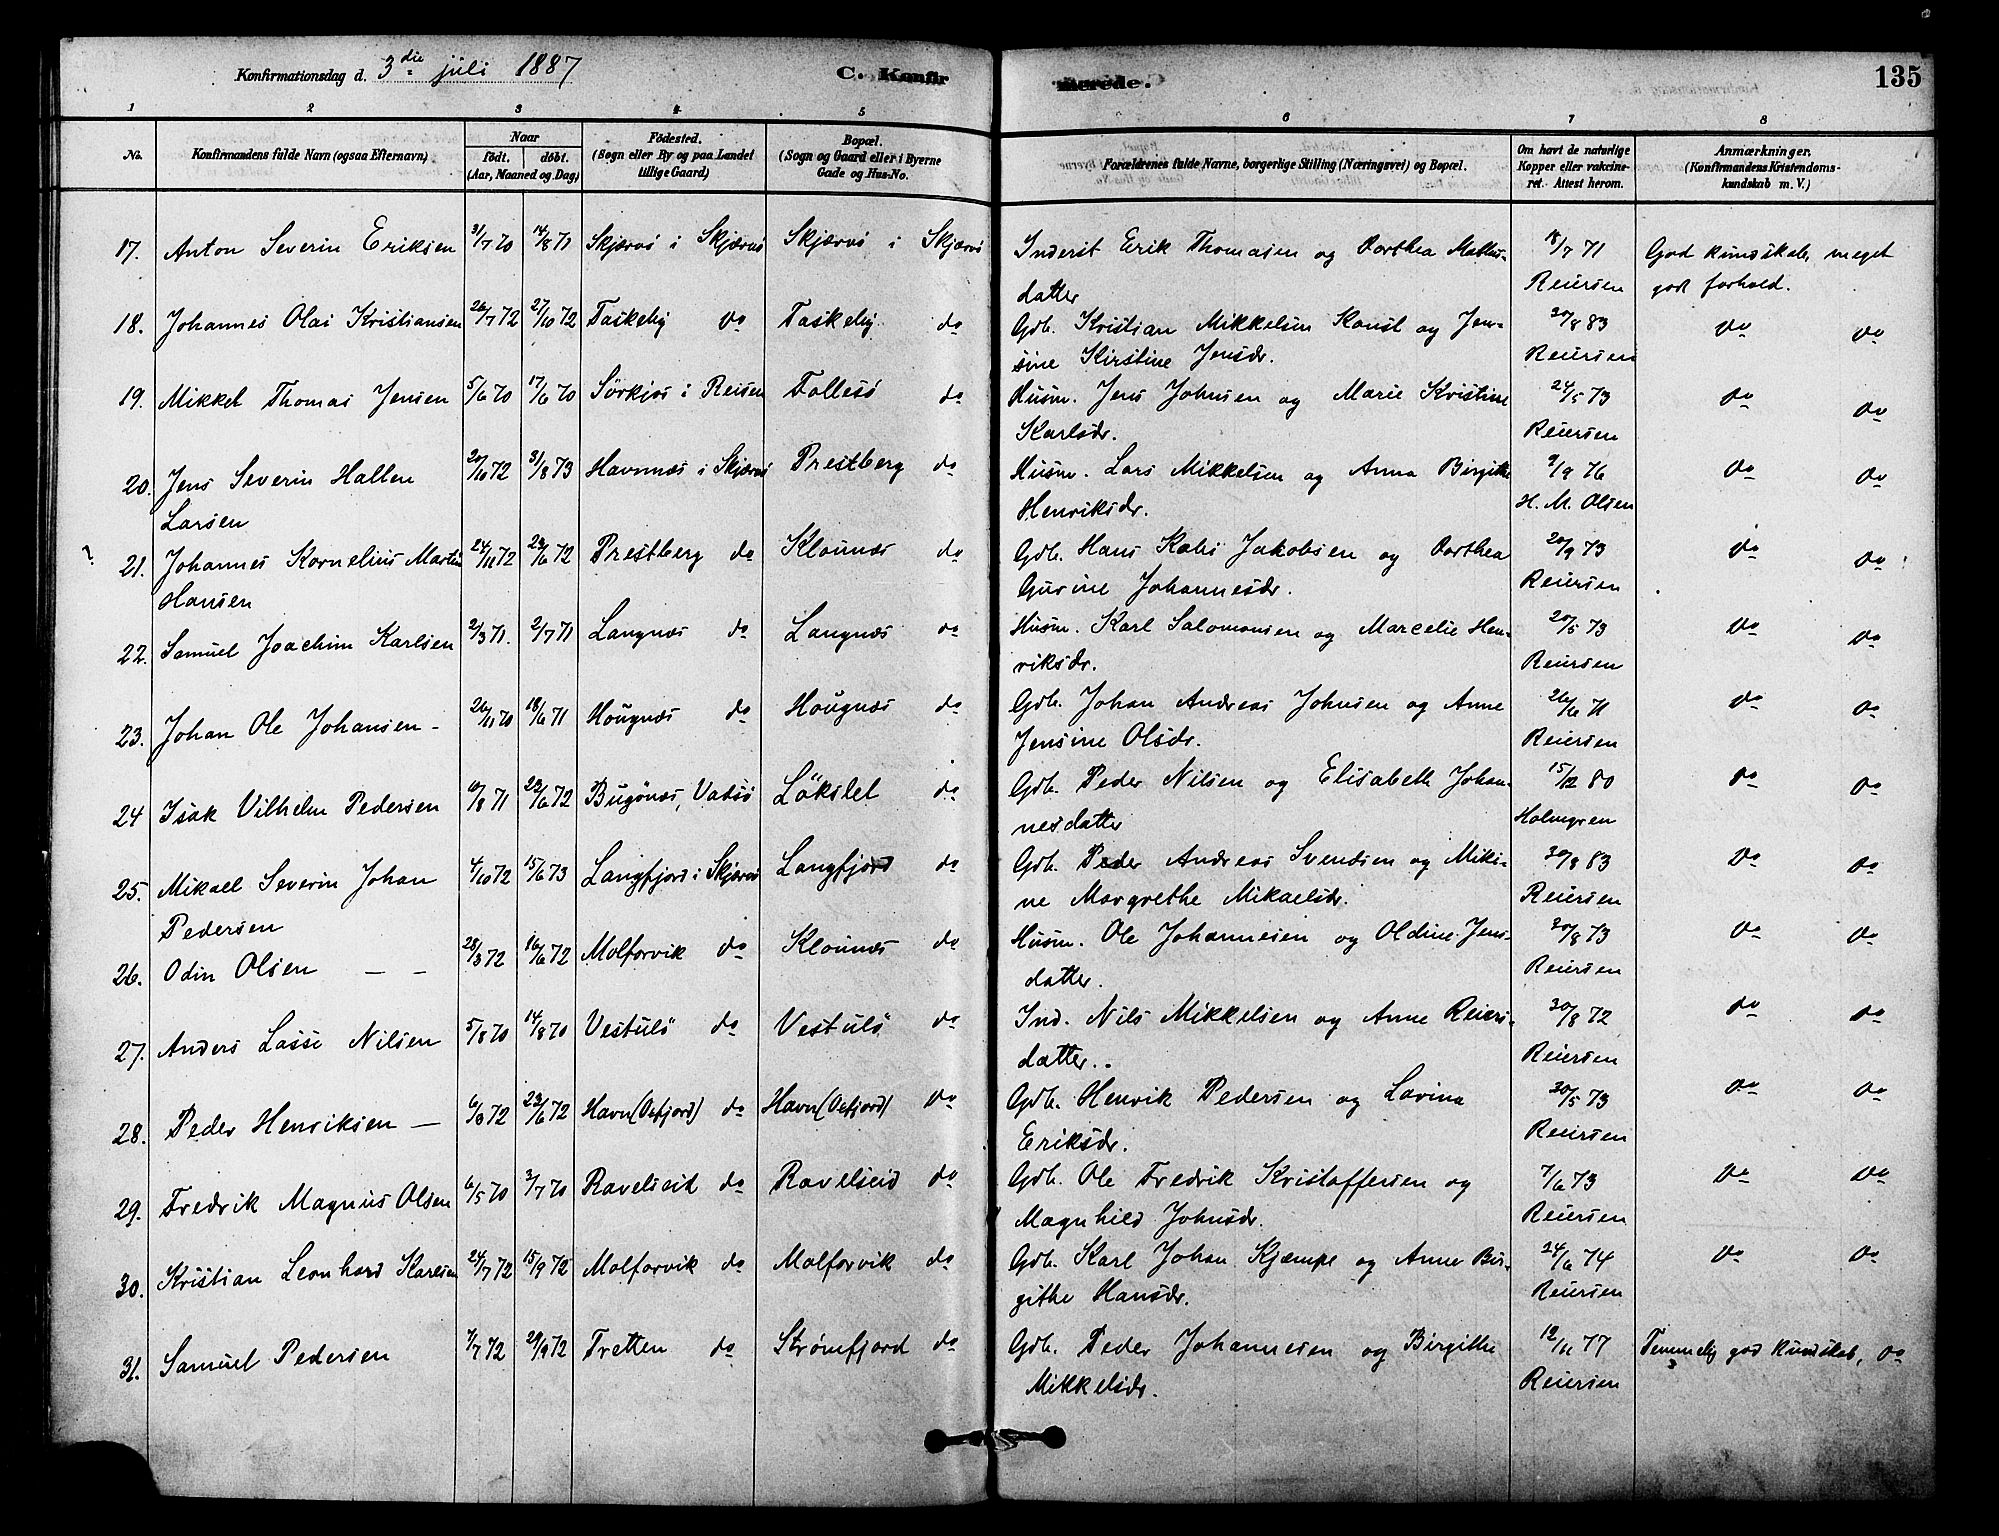 Konfirmationsdag d. 3die juli 1887 C. Konfir merede. 135
1 2 3 4 5 6 7 8
No. Konfirmandens fulde Navn (ogsaa Efternavn) Naar født. døbt. (Aar, Maaned og Dag) Fødested. (Sogn eller By og paa Landet tillige Gaard) Bopæl. (Sogn og Gaard eller i Byerne Gade og Hus-No. Forældrenes fulde Navne, borgerlige Stilling (Næringsvei) og Bopæl. Om havt de naturlige Kopper eller vakcineret. Attest herom. Anmærkninger. (Konfirmandens Kristendomskundskab m. V.)
17. Anton Severin Eriksen 31/7 70 14/8 71 Skjærvö i Skjærvö Skjærvö i Skjærvö Inderst Erik Thomasen og Dorthea Mathis- 18/7 71 God kundskab, meget
datter Reiersen god forhold.
18. Johannes Olai Kristiansen 26/7 72 27/10 72 Taskeby do Taskeby do Gdb. Kristian Mikkelsen Konst og Jen- 20/8 83 do do
sine Kirstine Jensdr. Reiersen
19. Mikkel Thomas Jensen 5/6 70 17/6 70 Sörkjos i Reisen Follesö do Husm. Jens Johnsen og Marie Kristine 24/5 73 do do
Karlsdr. Reiersen
20. Jens Severin Hallen 20/10 72 31/8 73 Havnnæs i Skjærvö Prestberg do Husm. Lars Mikkelsen og Anna Birgitte 9/9 76 do do
Larsen Henriksdr. H. M. Olsen
21. Johannes Kornelius Martin 24/11 72 23/6 72 Prestberg do Klounæs do Gdb. Hans Kabi Jakobsen og Dorthea 20/9 73 do do
Hansen Gurine Johannesdr. Reiersen
22. Samuel Joachim Karlsen 2/3 71. 2/7 71 Langnæs do Langnæs do Husm. Karl Salomonsen og Marcelie Hen- 20/5 73 do do
riksdr. Reiersen
23. Johan Ole Johansen - 26/11 70 18/6 71 Hougnæs do Hougnæs do Gdb. Johan Andreas Johnsen og Anne 26/6 71 do do
Jensine Olsdr. Reiersen
24 Isak Vilhelm Pedersen 10/8 71 23/6 72 Bugönæs, Vadsö Lökslet do Gdb. Peder Nilsen og Elisabeth Johan- 15/12 80 do do
nesdatter Holmgren
25. Mikael Severin Johan 4/10 72 15/6 73 Langfjord i Skjærvö Langfjord do Gdb. Peder Andreas Svendsen og Miki- 30/8 83 do do
Pedersen ne Margrethe Mikaelsdr. Reiersen
26. Odin Olsen — — 28/3 72 16/6 72 Molforvik do Klounæs do Husm. Ole Johannesen og Oldine Jens- 20/8 73 do do
datter. Reiersen
27. Anders Lasse Nilsen 5/8 70 14/8 70 Vestulö do Vestulö do Ind. Nils Mikkelsen og Anne Reiers- 30/8 72 do do
datter.. Reiersen
28. Peder Henriksen — 6/3 72 23/6 72 Havn (Oxfjord) do Havn (Oxfjord) do Gdb. Henrik Pedersen og Lovina 30/5 73 do do
Eriksdr. Reiersen
29. Fredrik Magnus Olsen 6/5 70 3/7 70 Ravelseid do Ravelseid do Gdb. Ole Fredrik Kristoffersen og 7/6 73 do do
Magnhild Johnsdr. Reiersen
30. Kristian Leonhard Karlsen 24/7 72 15/9 72 Molforvik do Molforvik do Gdb. Karl Johan Kjæmpe og Anne Bir- 24/6 74 do do
githe Hansdr. Reiersen
31. Samuel Pedersen 7/7 72 29/9 72 Tretten do Strømfjord do Gdb. Peder Johannesen og Birgitte 12/11 77 Temmelig god kundskab, do
Mikkelsdr. Reiersen